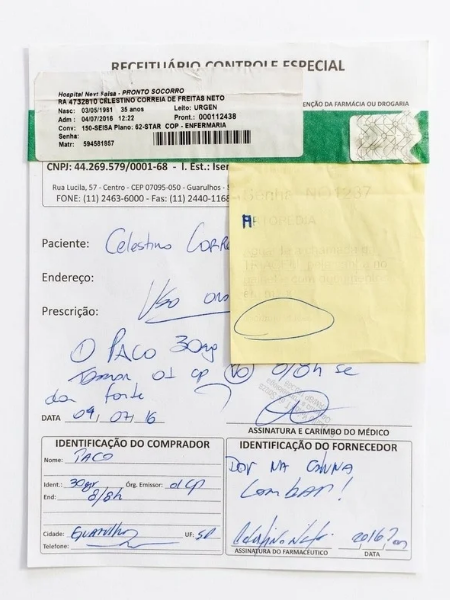 RECEITUÁRIO CONTROLE ESPECIAL
Hospital Next - PRONTO SOCORRO
RA 4732810 CELESTINO CORREIA DE FREITAS NETO
Nasc: 03/05/1981 35 anos Leito: URGEN
Adm : 04/07/2016 12:22 Pront.: 000112438
Conv: 150-SEISA Plano: 62-STAR COP - ENFERMARIA
Senha:
Matr: 594581657
ENÇÃO DA FARMÁCIA OU DROGARIA
CNPJ: 44.269.579/0001-68 - I. Est.: Isen
Rua Lucila, 57 - Centro - CEP 07095-050 - Guarulhos -
FONE: (11) 2463-6000 - Fax: (11) 2440-1168
Paciente: Celestino Corre
Endereço:
Prescrição: Uso
① PACO 30mg
Tomar 01 cp VO 8/8h se
dor forte
DATA 09, 07, 16
ASSINATURA E CARIMBO DO MÉDICO
IDENTIFICAÇÃO DO COMPRADOR
Nome: PACO
Ident.: 30gr Órg. Emissor: 01 CP
End: 8/8h
Cidade: Guarulhos UF: SP
Telefone:
IDENTIFICAÇÃO DO FORNECEDOR
DOR NA COLUNA
Lombar!
ASSINATURA DO FARMACÊUTICO DATA